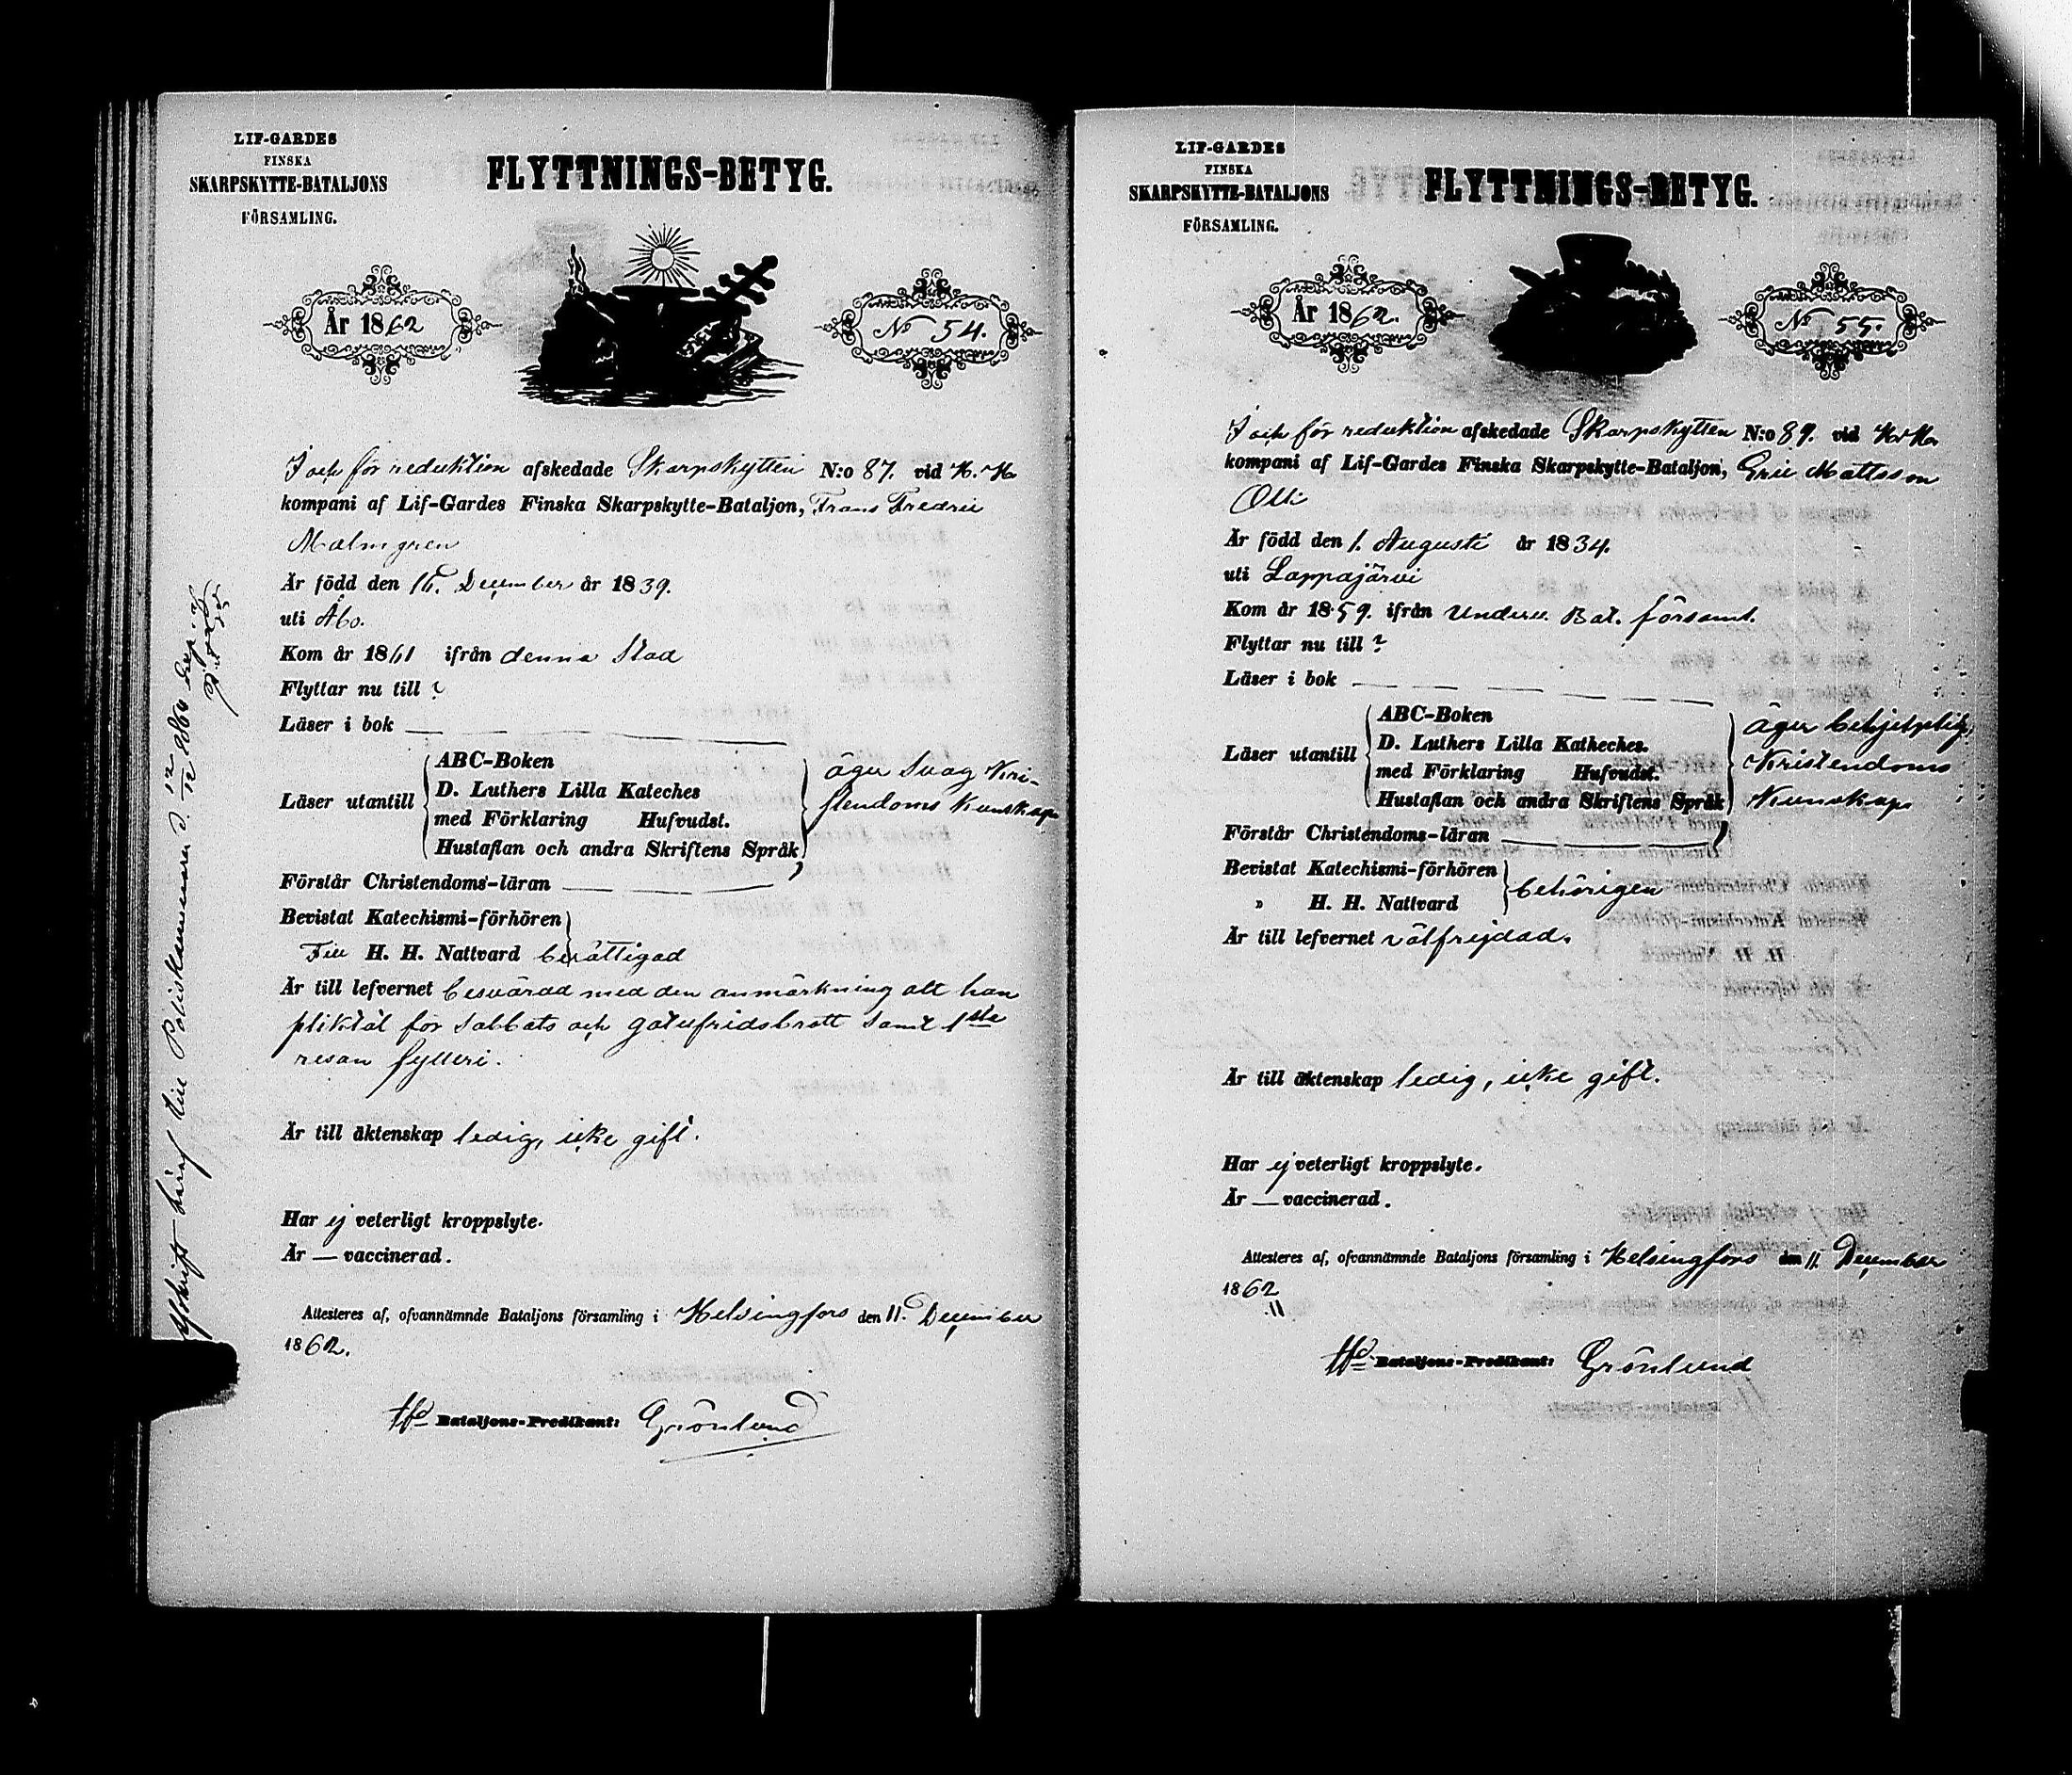 LIF-GARDES
FINSKA
SKARPSKYTTE-BATALJONS
FÖRSAMLING.
FLYTTNINGS-BETYG.
År 1862
No 54.
I och för reduktion afskedade Skarpskytten N:o 87. vid H. K.
kompani af Lif-Gardes Finska Skarpskytte-Bataljon, Frans Fredric
Malmgren
Är född den 16. December år 1839.
uti Åbo.
Kom år 1861 ifrån denna Stad
Flyttar nu till ?
Läser i bok —
Läser utantill
ABC-Boken
D. Luthers Lilla Kateches
med Förklaring Hufvudst.
Hustaflan och andra Skriftens Språk
äger Svag Kri-
stendoms Kunskap
Förstår Christendoms-läran —
Bevistat Katechismi-förhören
Till H. H. Nattvard berättigad
Är till lefvernet besvärad med den anmärkning att han
pliktat för sabbats och gatufridsbrott samt 1sta
resan fylleri.
Är till äktenskap ledig, icke gift.
Har ej veterligt kroppslyte.
Är — vaccinerad.
Attesteres af, ofvannämnde Bataljons församling i Helsingfors den 11. December
1862.
Bataljons-Predikant: Grönlund
Afskrift häraf till Poliskammaren d. 12/12 1860
LIF-GARDES
FINSKA
SKARPSKYTTE-BATALJONS
FÖRSAMLING.
FLYTTNINGS-BETYG.
År 1862.
No 55.
I och för reduktion afskedade Skarpskytten N:o 89. vid
kompani af Lif-Gardes Finska Skarpskytte-Bataljon, Eric Mattsson
Olli
Är född den 1. Augusti år 1834.
uti Lappajärvi
Kom år 1859. ifrån Underv. Bat. församl.
Flyttar nu till ?
Läser i bok —
Läser utantill
ABC-Boken
D. Luthers Lilla Katheches.
med Förklaring Hufvudst.
Hustaflan och andra Skriftens Språk
äger behjelplig
Kristendoms
Kunskap
Förstår Christendoms-läran —
Bevistat Katechismi-förhören
" H. H. Nattvard
behörigen
Är till lefvernet välfrejdad.
Är till äktenskap ledig, icke gift.
Har ej veterligt kroppslyte.
Är — vaccinerad.
Attesteres af, ofvannämnde Bataljons församling i Helsingfors den 11. December
1862
Bataljons-Predikant: Grönlund